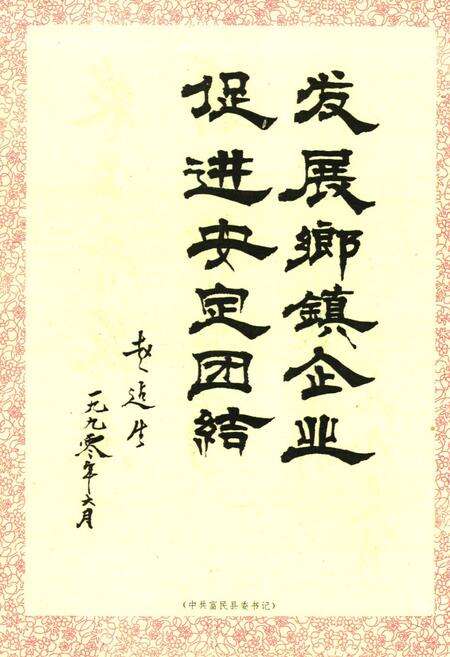 发展鄉鎮企业
促进安定团結
赵
生
一九九零年六月
（中共富民县委书记）